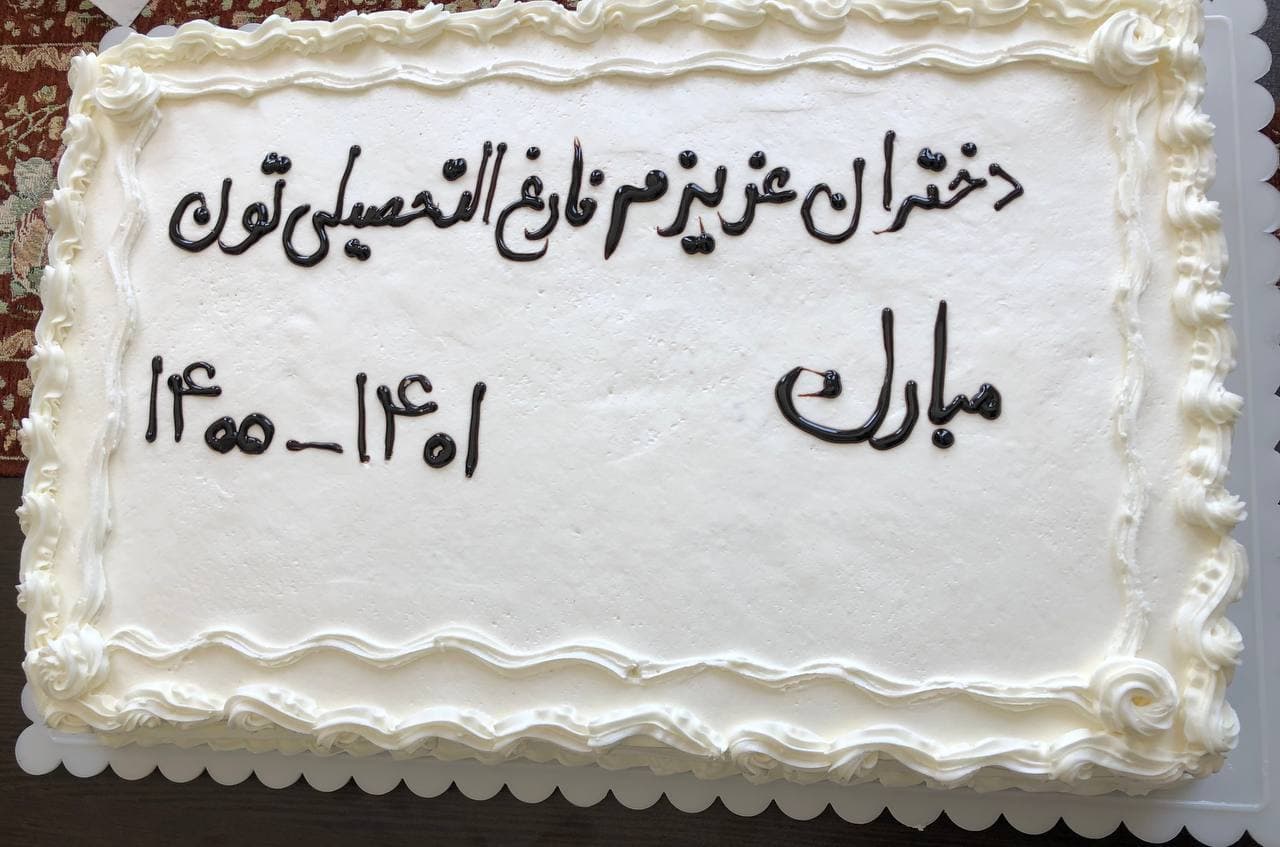 دختران عزیزم فارغ التحصیلی تون
مبارک
۱۴۰۰-۱۴۰۱